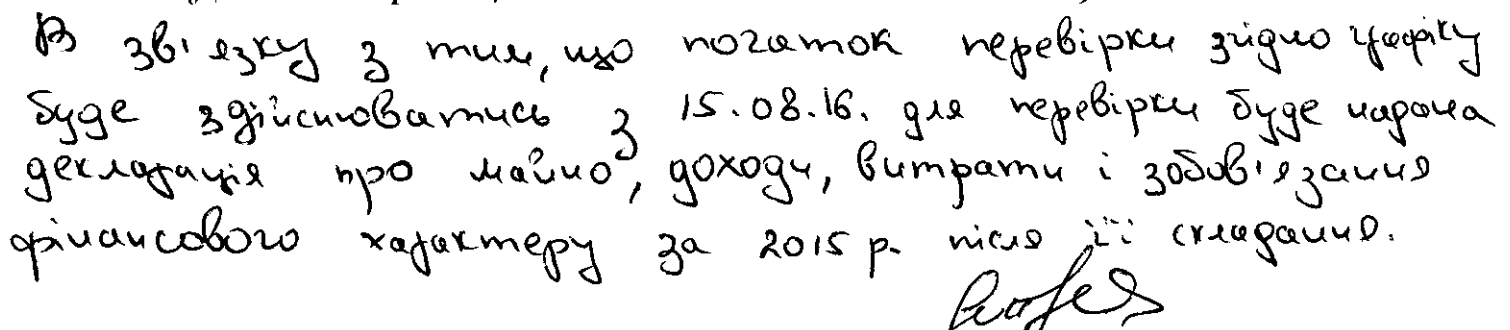 В зв'язку з тим, що початок перевірки згідно графіку
буде здійснюватись з 15.08.16. для перевірки буде надана
декларація про майно, доходи, витрати і зобов'язання
фінансового характеру за 2015 р. після її складання.